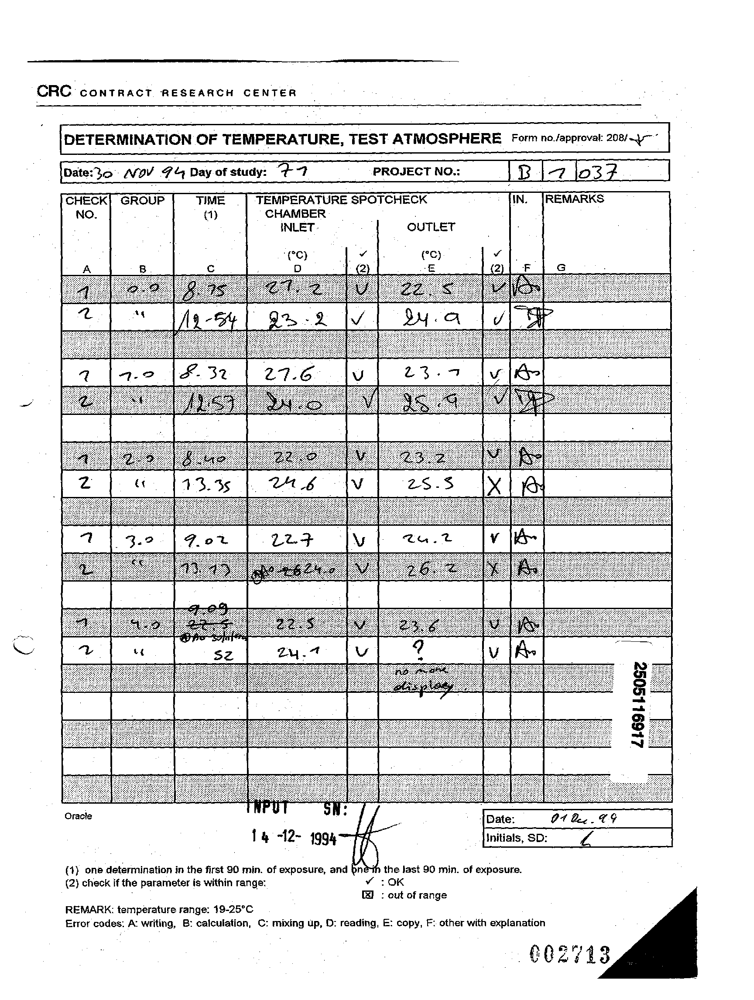 CRC CONTRACT RESEARCH CENTER
DETERMINATION OF TEMPERATURE, TEST ATMOSPHERE Form no./approval: 208/
Date: 30 NOV 94 Day of study: 71 PROJECT NO.: B 1 037
CHECK NO. GROUP TIME (1) TEMPERATURE SPOTCHECK IN. REMARKS
CHAMBER
INLET OUTLET
(°C) ✓ (°C) ✓
A B C D (2) E (2) F G
1 0.0 8.15 21.2 V 22.5 V
2 " 12-54 23.2 V 24.9 V
1 1.0 8.32 21.6 V 23.1 V
2 " 12.57 24.0 V 25.9 V
1 2.0 8.40 22.0 V 23.2 V
2 " 13.35 24.6 V 25.5 X
1 3.0 9.02 22.7 V 24.2 V
2 " 13.13 24.0 V 26.2 X
9.09
1 4.0 22.5 22.5 V 23.6 V
2 " 52 24.1 V ? V
no more
display
2505116917
Oracle
INPUT SN:
14 -12- 1994
Date: 01 Dec. 94
Initials, SD:
(1) one determination in the first 90 min. of exposure, and one in the last 90 min. of exposure.
(2) check if the parameter is within range: ✓ : OK
☒ : out of range
REMARK: temperature range: 19-25°C
Error codes: A: writing, B: calculation, C: mixing up, D: reading, E: copy, F: other with explanation
002713